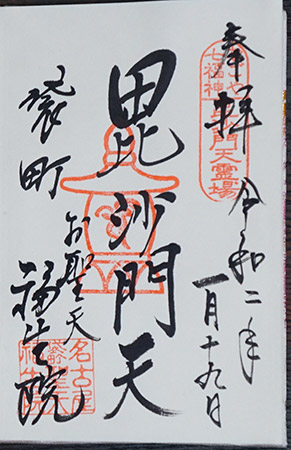 奉拝 令和二年
一月十九日
七福神
毘沙門天霊場
毘沙門天
袋町
お聖天
福生院
名古屋